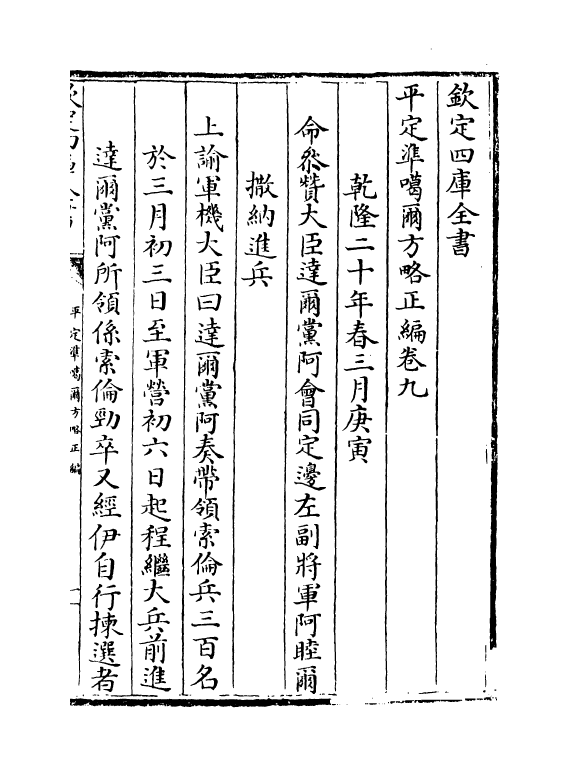 欽定四庫全書
平定準噶爾方略正編卷九
乾隆二十年春三月庚寅
命叅贊大臣達爾黨阿會同定邊左副將軍阿睦爾
撒納進兵
上諭軍機大臣曰達爾黨阿奏帶領索倫兵三百名
於三月初三日至軍營初六日起程繼大兵前進
達爾黨阿所領係索倫勁卒又經伊自行揀選者
欽定四庫全書
平定準噶爾方略正編